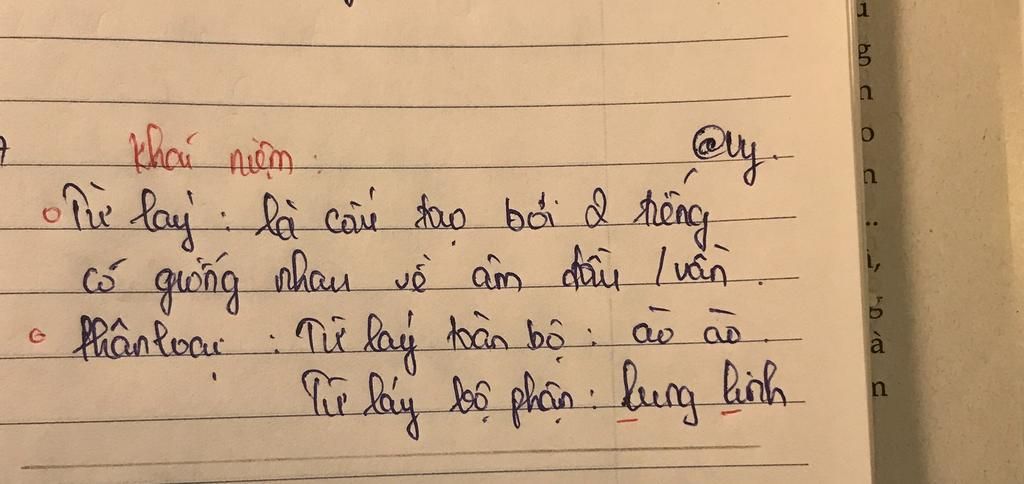 Khái niệm: @vy.
Từ láy: là cấu tạo bởi 2 tiếng
có giống nhau về âm đầu / vần.
Phân loại: Từ láy toàn bộ: ào ào.
Từ láy bộ phận: lung linh